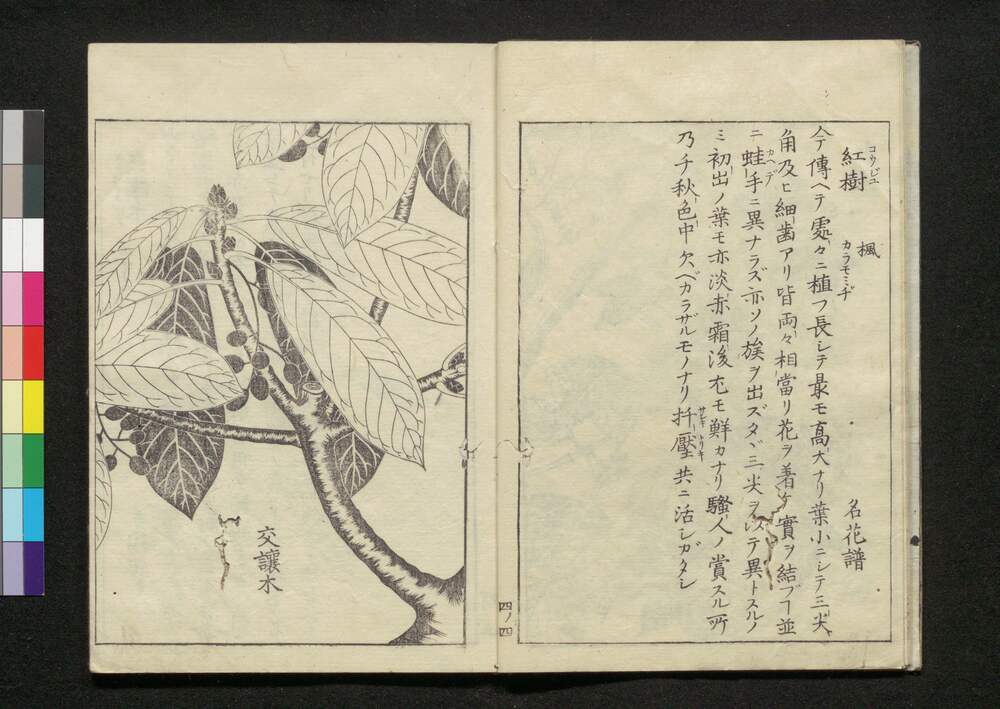 紅樹 コウジユ 楓 カラモミヂ 名花譜
今傳ヘテ處々ニ植フ長シテ最モ高大ナリ葉小ニシテ三尖
角及ヒ細歯アリ皆両々相當リ花ヲ著ケ實ヲ結ブ並
ニ蛙手ニ異ナラズ亦ソノ族ヲ出ズタヾ三尖ヲ以テ異トスルノ
カヘデ
ミ初出ノ葉モ亦淡赤霜後尤モ鮮カナリ騒人ノ賞スル所
乃チ秋色中欠ベカラザルモノナリ扦壓共ニ活シガタシ
サシキ トリキ
四ノ四
交讓木